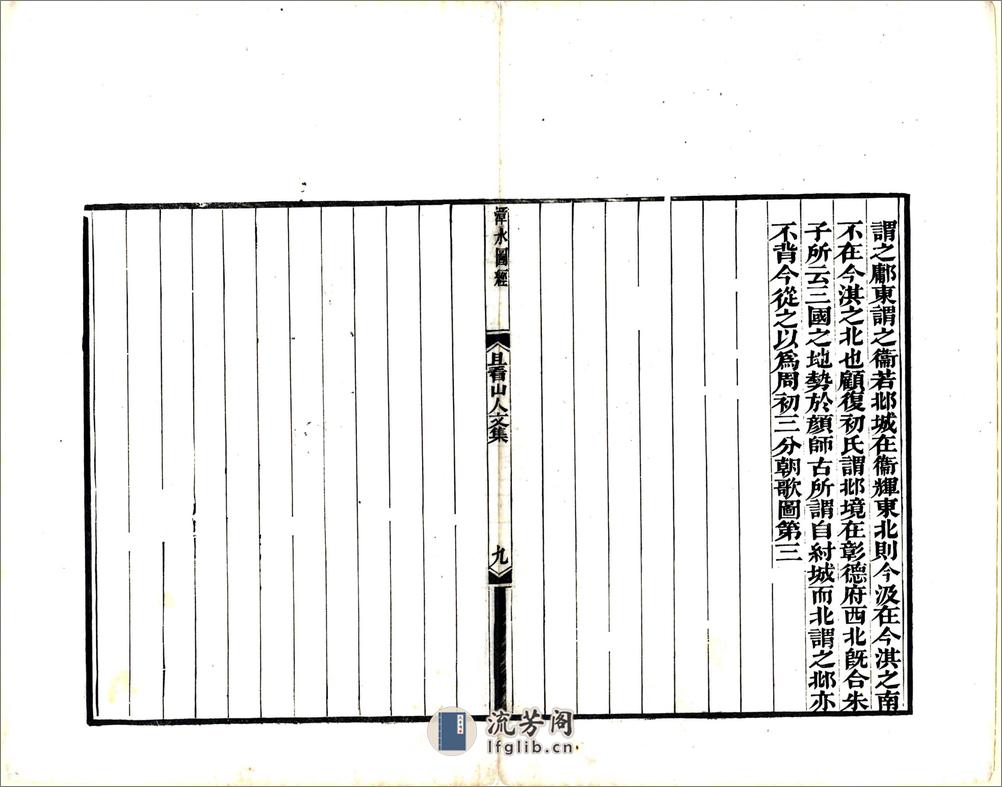 謂之鄘東謂之衞若邶城在衞輝東北則今汲在今淇之南
不在今淇之北也顧復初氏謂邶境在彰德府西北旣合朱
子所云三國之地勢於顔師古所謂自紂城而北謂之邶亦
不背今從之以爲周初三分朝歌圖第三
漳水圖經
且看山人文集
九
流芳阁
lfglib.cn